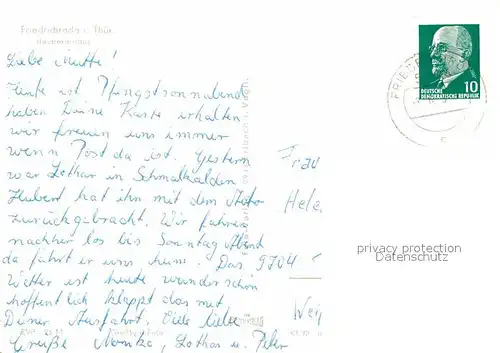 Friedrichroda i. Thür.
Liebe Mutti!
Heute ist Pfingstsonnabend
haben Deine Karte erhalten
wir freuen uns immer
wenn Post da ist. Gestern
war Lothar in Schmalkalden
Hubert hat ihn mit dem Auto
zurückgebracht. Wir fahren
nachher los bis Sonntag Abend
da fährt er uns heim. Das
Wetter ist heute wunderschön
hoffentlich klappt das mit
Deiner Ausfahrt. Viele liebe
Grüße Lothar u. Peter
Frau
Hele
9704
Wey
10
DEUTSCHE
DEMOKRATISCHE REPUBLIK
privacy protection
Datenschutz